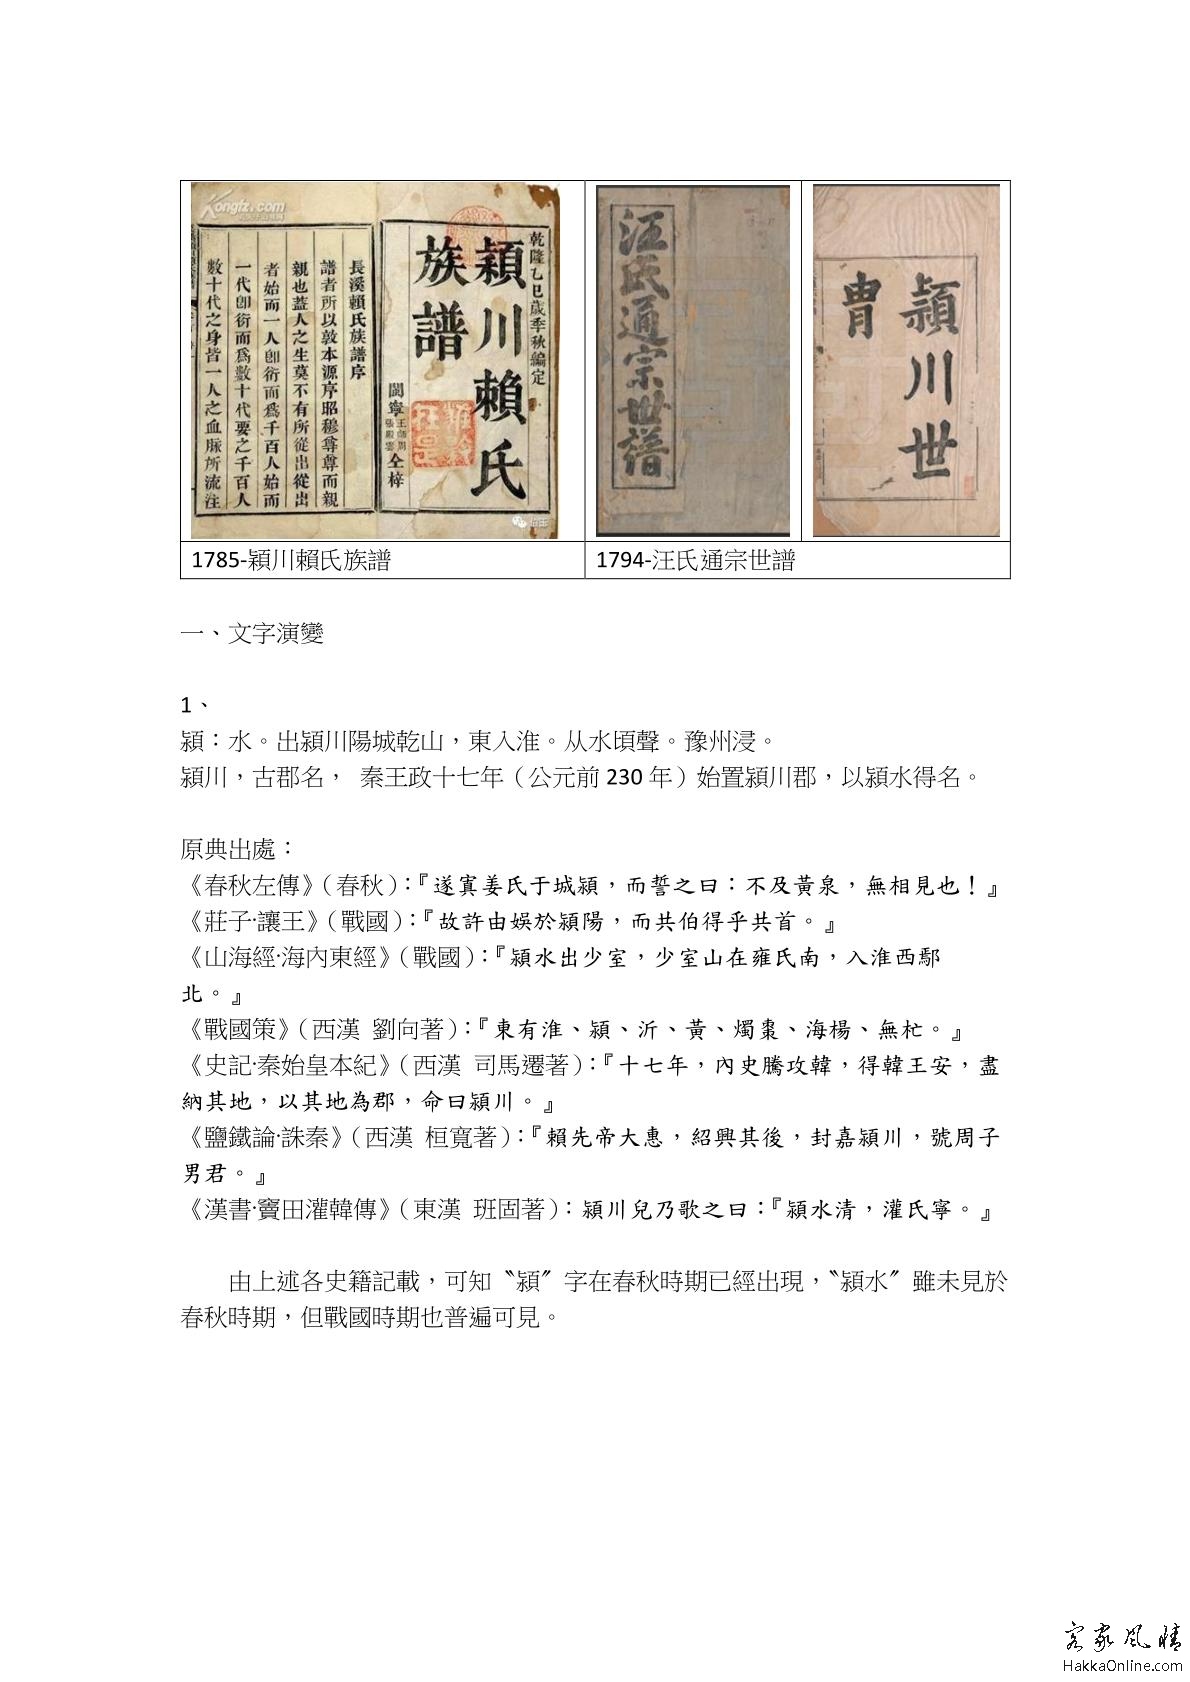 Kongfz.com
乾隆乙巳歲季秋編定
穎川賴氏
族譜
閩寧王師周張殿雲仝梓
長溪賴氏族譜序
譜者所以敦本源序昭穆尊尊而親
親也蓋人之生莫不有所從出從出
者始而一人卽衍而爲千百人始而
一代卽衍而爲數十代要之千百人
數十代之身皆一人之血脉所流注
汪氏通宗世譜
潁川世
冑
1785-穎川賴氏族譜
1794-汪氏通宗世譜
一、文字演變
1、
潁：水。出潁川陽城乾山，東入淮。从水頃聲。豫州浸。
潁川，古郡名， 秦王政十七年（公元前 230 年）始置潁川郡，以潁水得名。
原典出處：
《春秋左傳》（春秋）：『遂寘姜氏于城潁，而誓之曰：不及黃泉，無相見也！』
《莊子·讓王》（戰國）：『故許由娛於潁陽，而共伯得乎共首。』
《山海經·海內東經》（戰國）：『潁水出少室，少室山在雍氏南，入淮西鄢
北。』
《戰國策》（西漢 劉向著）：『東有淮、潁、沂、黃、燭棗、海楊、無杧。』
《史記·秦始皇本紀》（西漢 司馬遷著）：『十七年，內史騰攻韓，得韓王安，盡
納其地，以其地為郡，命曰潁川。』
《鹽鐵論·誅秦》（西漢 桓寬著）：『賴先帝大惠，紹興其後，封嘉潁川，號周子
男君。』
《漢書·竇田灌韓傳》（東漢 班固著）：潁川兒乃歌之曰：『潁水清，灌氏寧。』
由上述各史籍記載，可知〝潁〞字在春秋時期已經出現，〝潁水〞雖未見於
春秋時期，但戰國時期也普遍可見。
客家風情
HakkaOnline.com